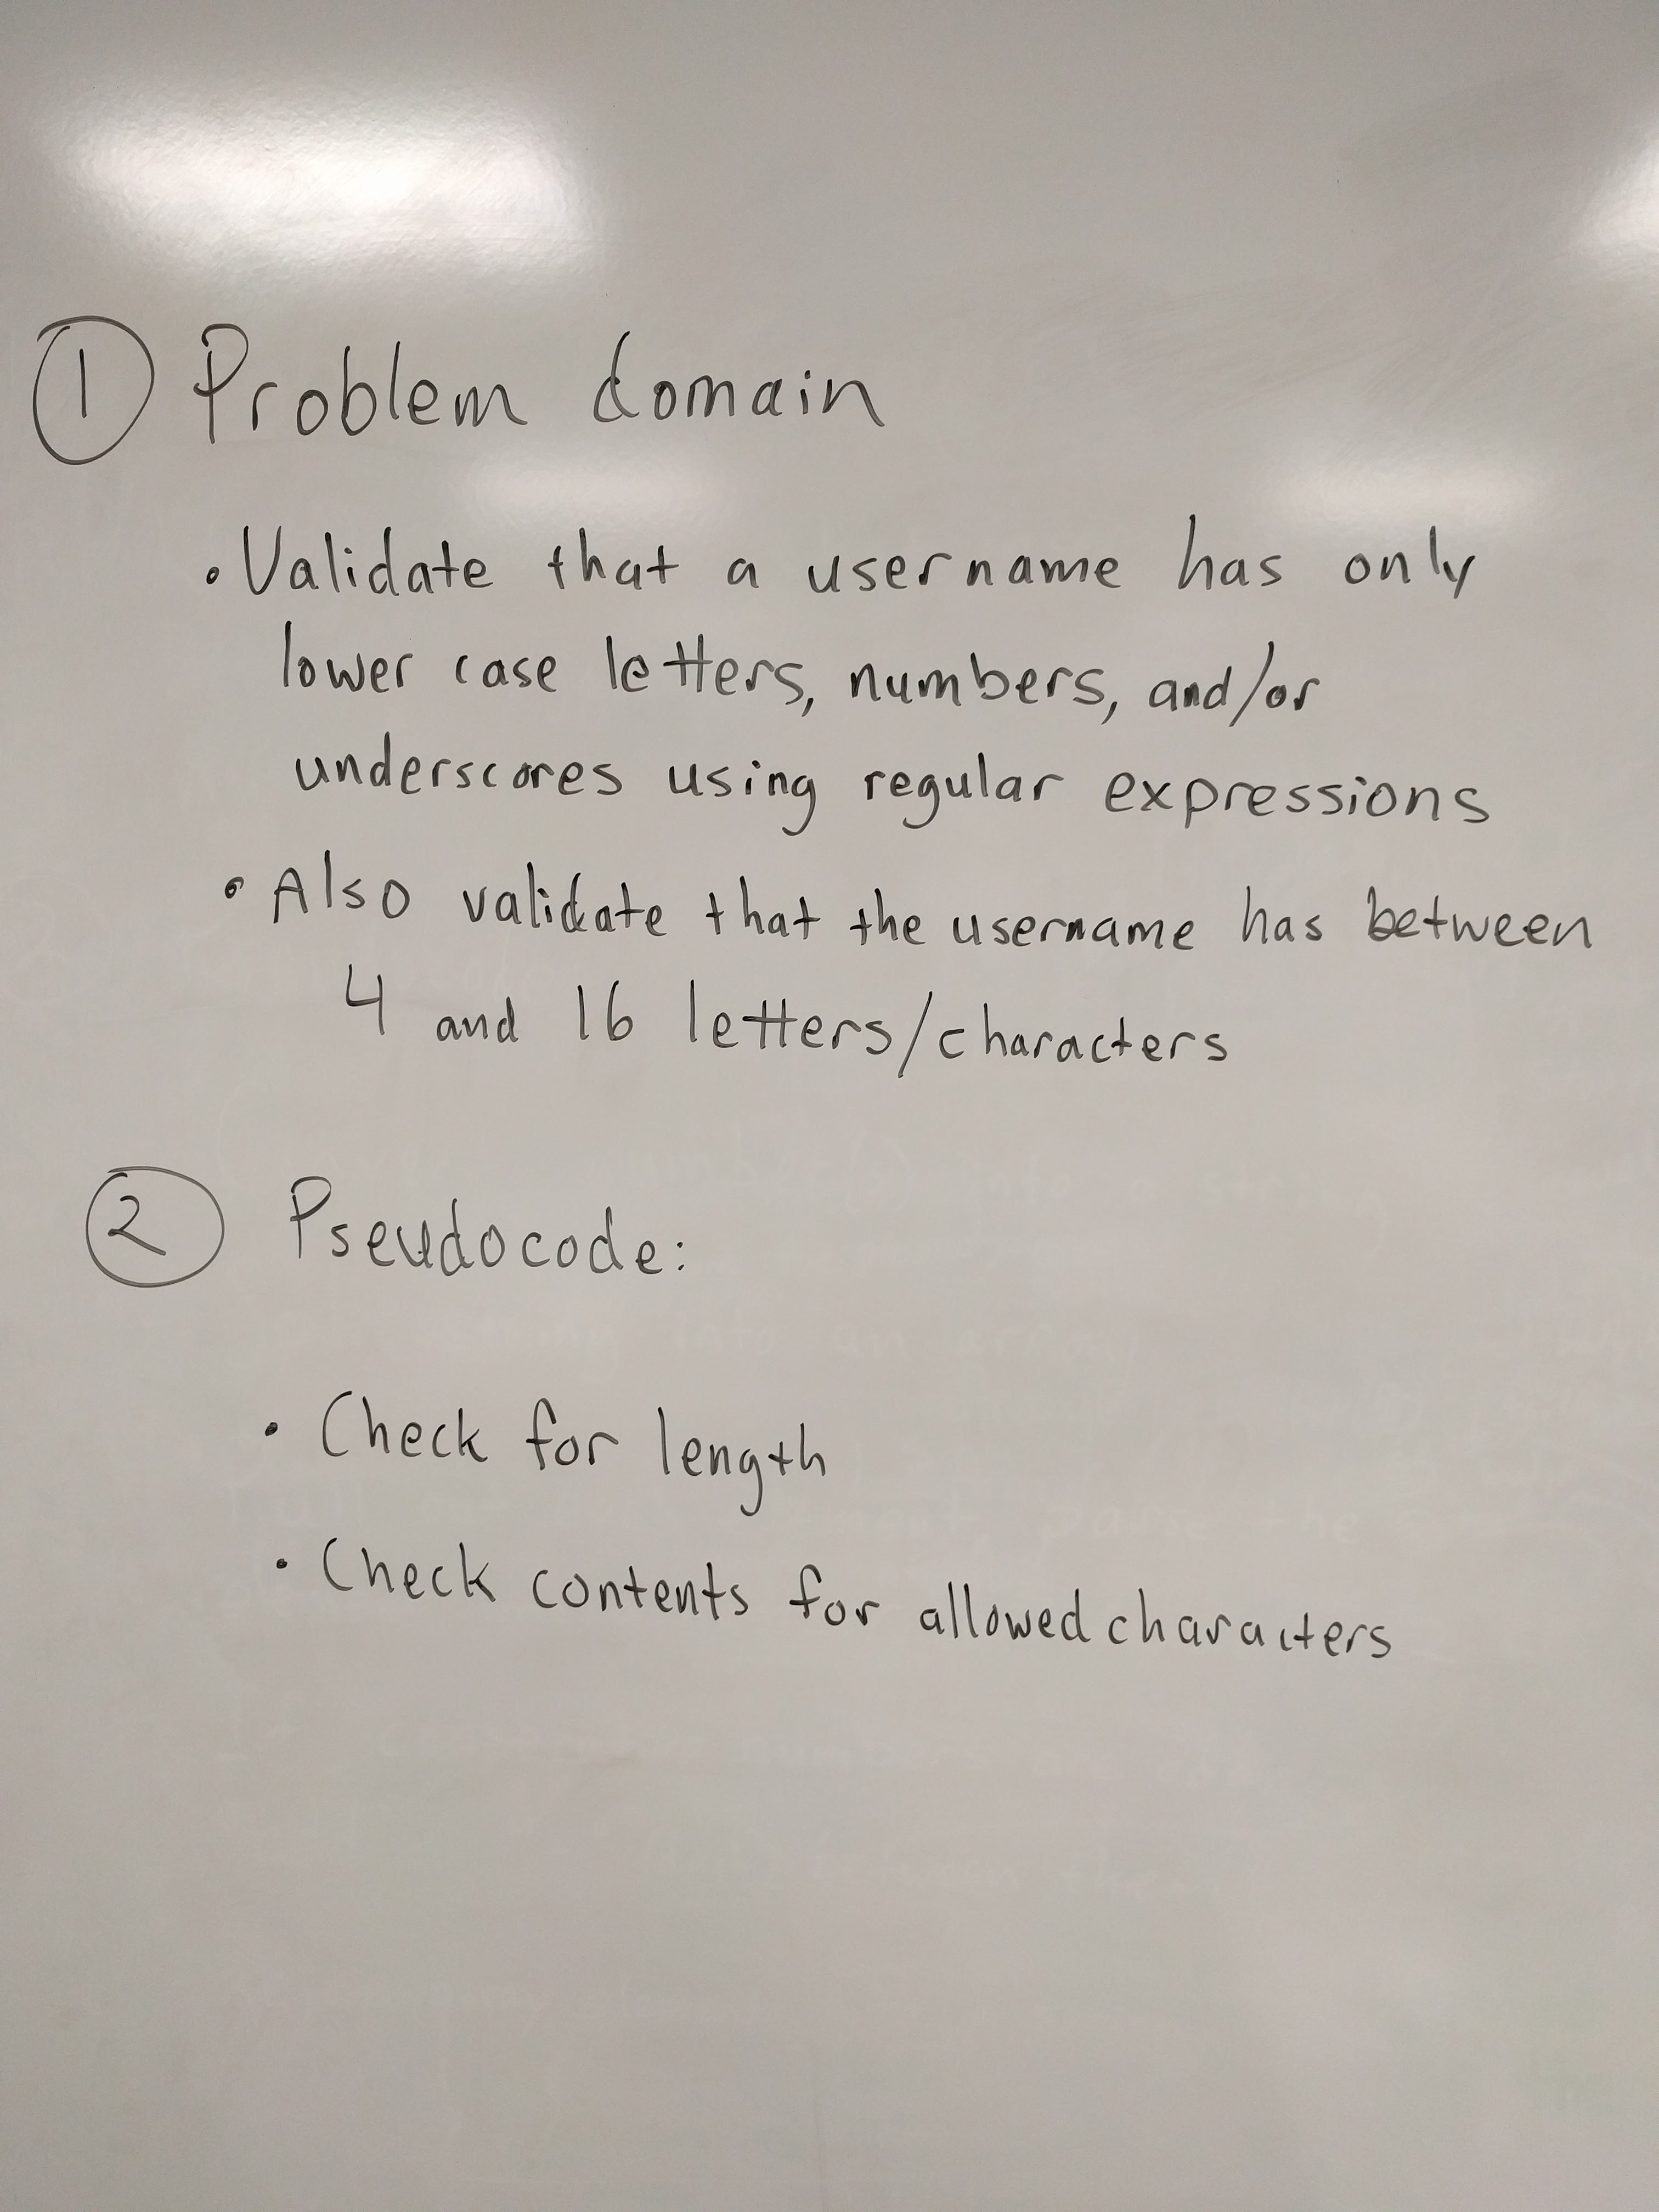 1 Problem domain
• Validate that a username has only
lower case letters, numbers, and/or
underscores using regular expressions
• Also validate that the username has between
4 and 16 letters/characters
2 Pseudocode:
• Check for length
• Check contents for allowed characters